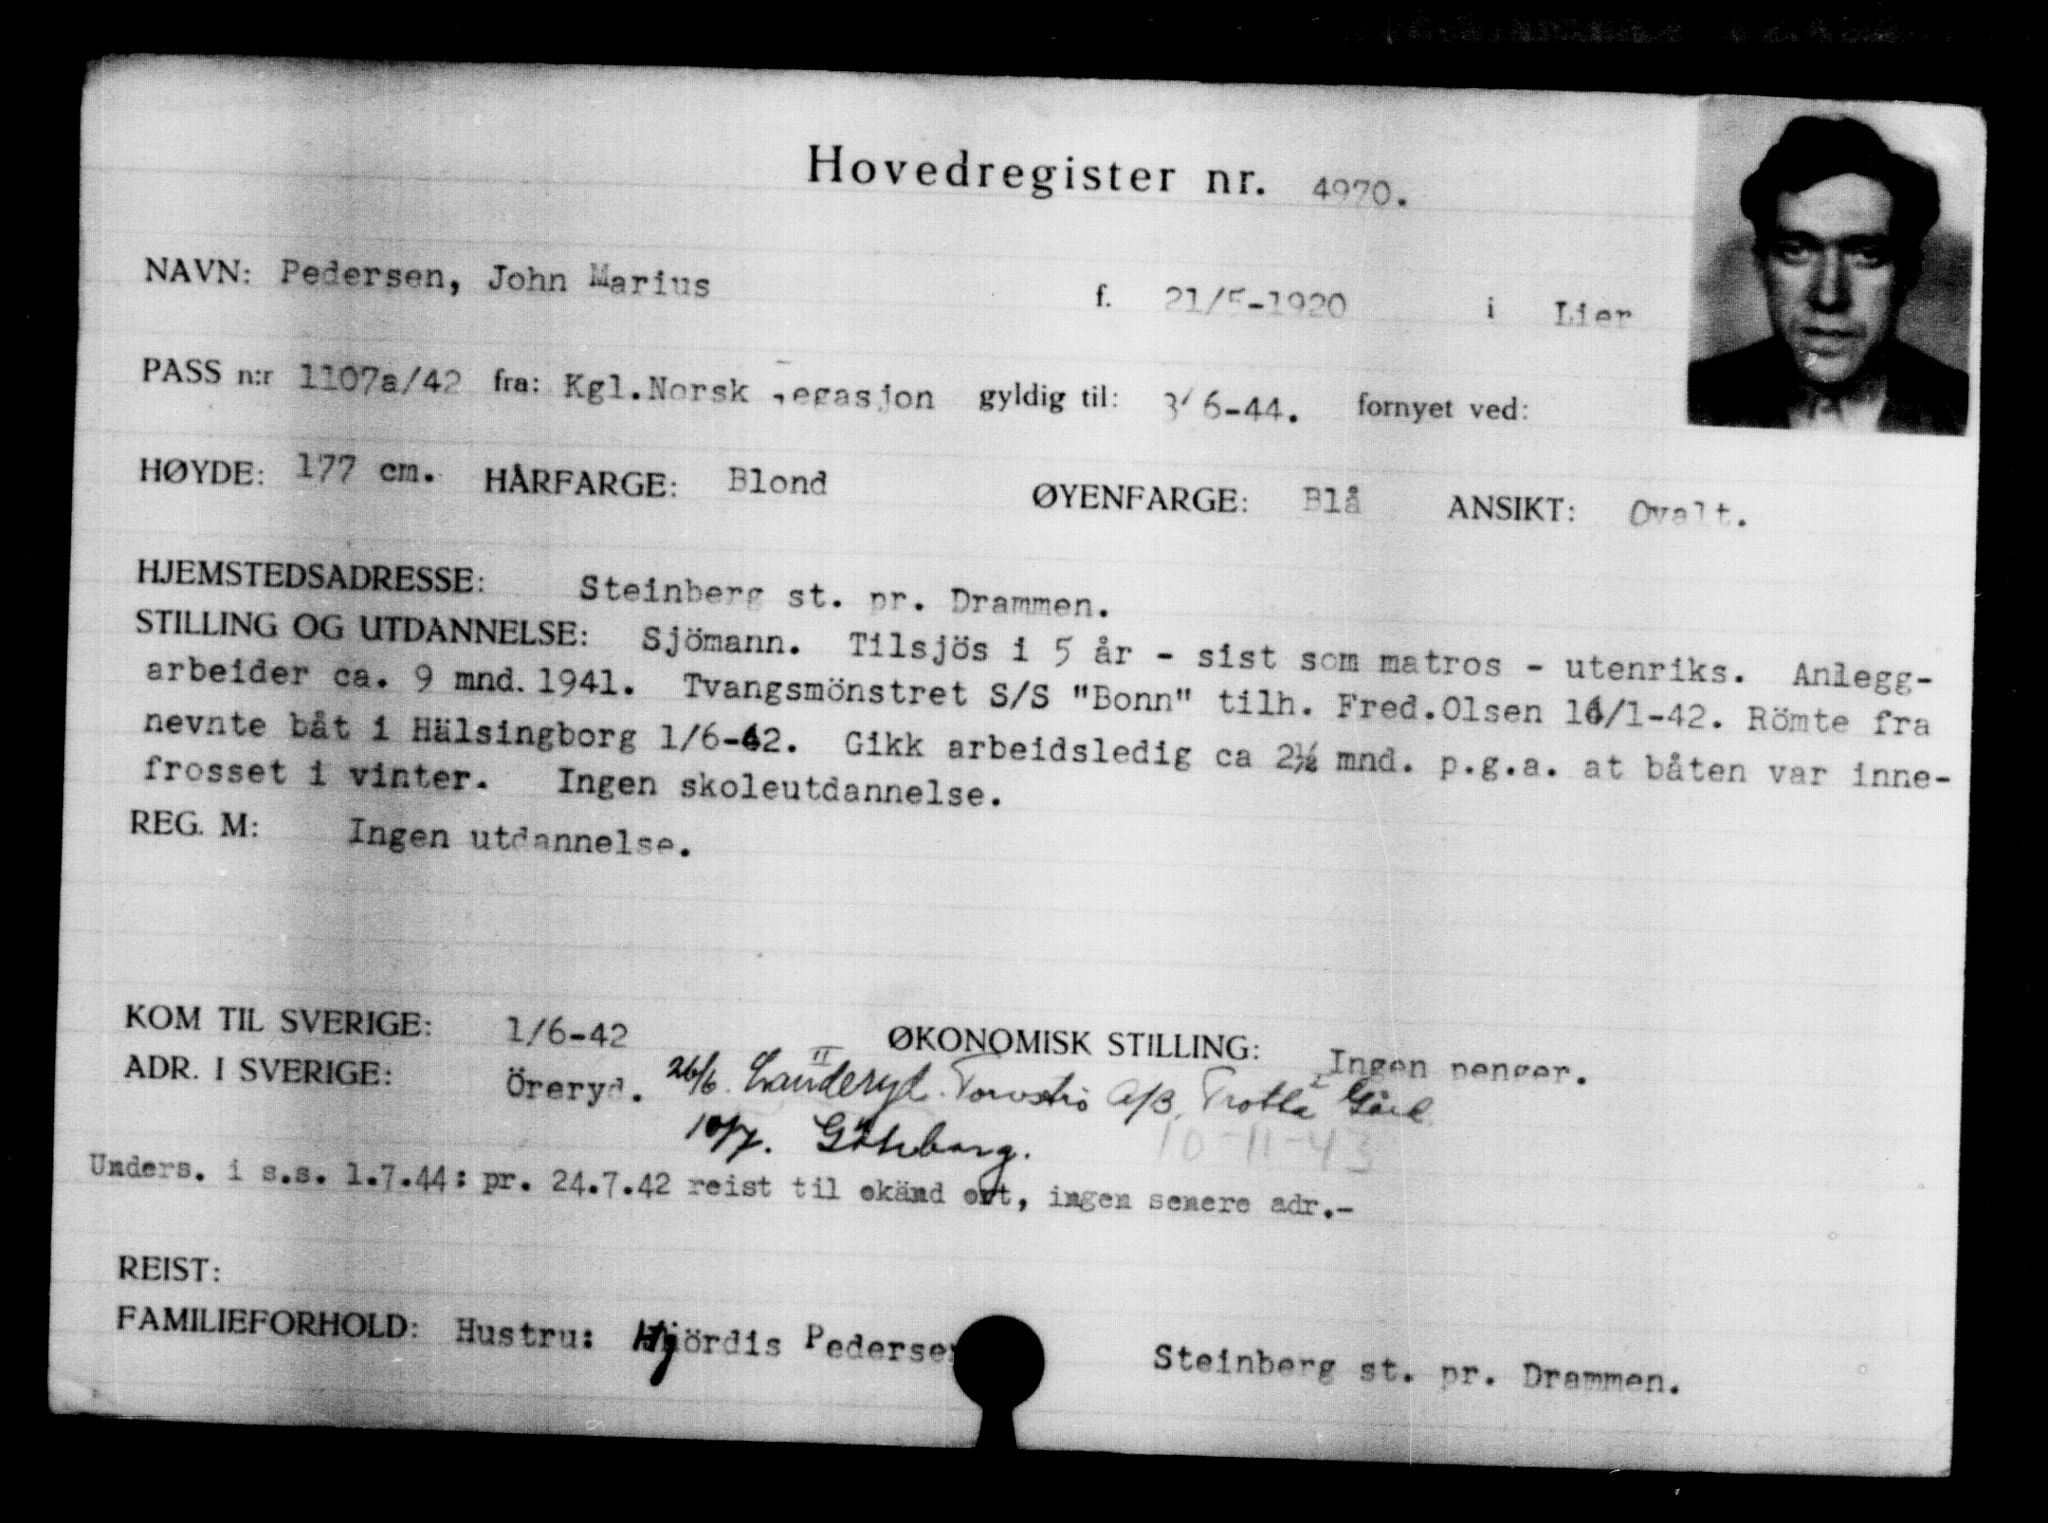 Hovedregister nr. 4970.
NAVN: Pedersen, John Marius f. 21/5-1920 i Lier
PASS n:r 1107a/42 fra: Kgl.Norsk Legasjon gyldig til: 3/6-44. fornyet ved:
HØYDE: 177 cm. HÅRFARGE: Blond ØYENFARGE: Blå ANSIKT: Ovalt.
HJEMSTEDSADRESSE: Steinberg st. pr. Drammen.
STILLING OG UTDANNELSE: Sjömann. Tilsjös i 5 år - sist som matros - utenriks. Anlegg-
arbeider ca. 9 mnd. 1941. Tvangsmönstret S/S "Bonn" tilh. Fred.Olsen 16/1-42. Römte fra
nevnte båt i Hälsingborg 1/6-42. Gikk arbeidsledig ca 2½ mnd. p.g.a. at båten var inne-
frosset i vinter. Ingen skoleutdannelse.
REG. M: Ingen utdannelse.
KOM TIL SVERIGE: 1/6-42 ØKONOMISK STILLING: Ingen penger.
ADR. I SVERIGE: Öreryd. 26/6. Landeryd. A/B,
10/7. Göteborg. 10-11-43
Unders. i s.s. 1.7.44: pr. 24.7.42 reist til okänd ort, ingen senere adr.-
REIST:
FAMILIEFORHOLD: Hustru: Hjördis Pedersen Steinberg st. pr. Drammen.